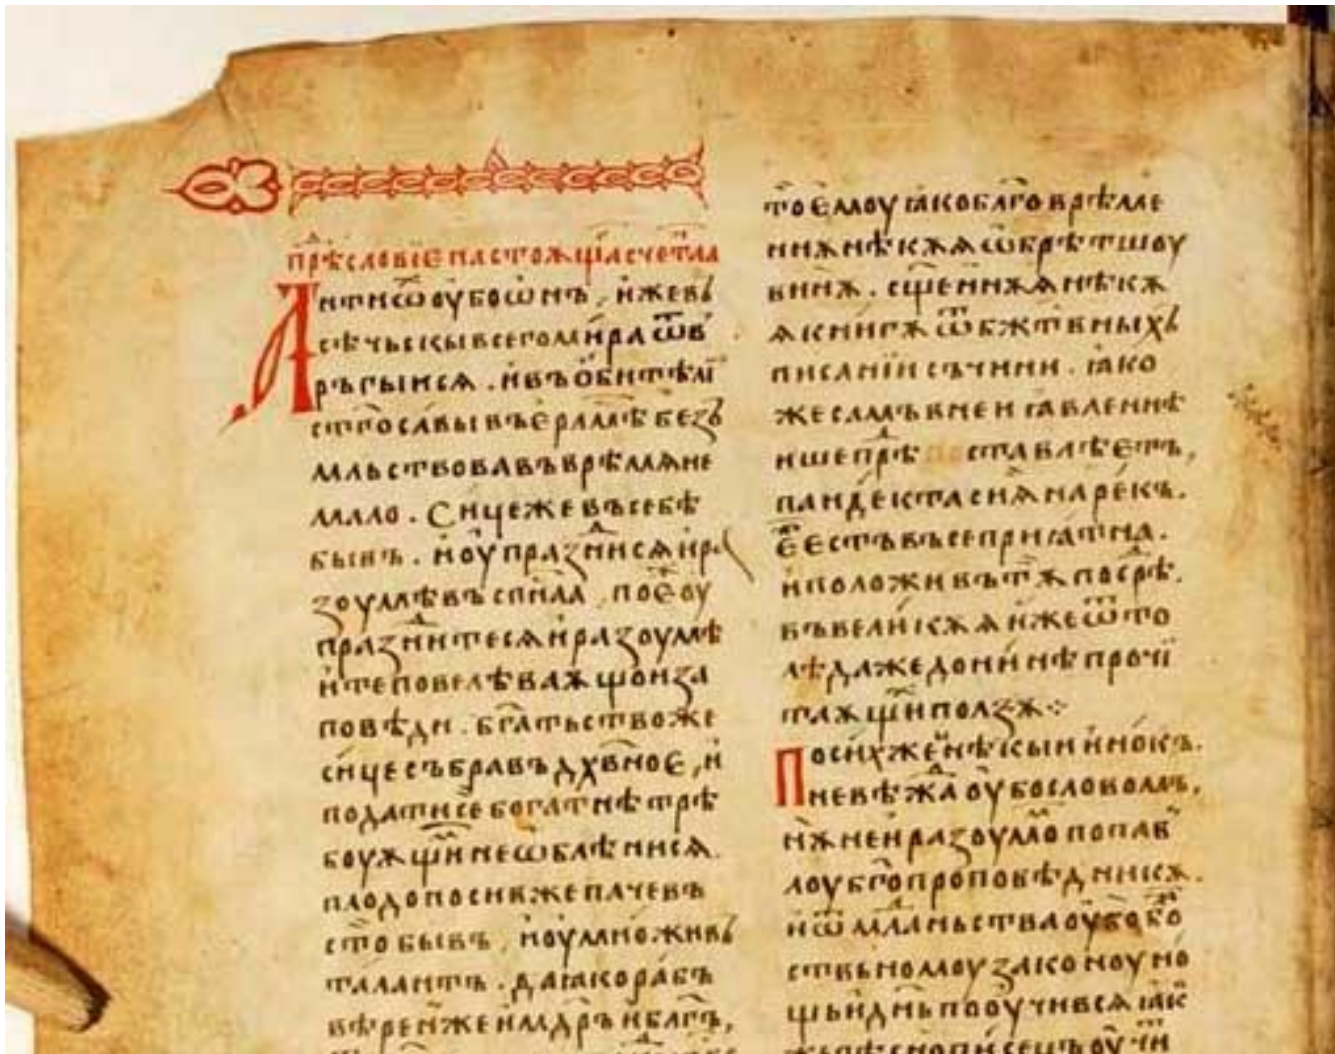 прѣсловїе настоѧщаѧ счетла
Антиѡ҅ убо ѡнъ, иже в҄ь
сѣчьскы всего мира ѿв
ръгыисѧ. ивъ обитѣли
ст҃го савы въ ерл҃мѣ безь
мльствовавъ врѣмѧ не
мало. Сице же въ себѣ
бывъ. и оупразнисѧ и ра
зоумѣ въ спс҃нїа, по еоу
празнитесѧ и разоумѣ
ите повелѣваѫщои за
повѣди. бг҃атьство же
сице събравъ дх҃вное, и
податисе богатнѣ трѣ
боуѫщїи не ѡблѣнисѧ.
плодопосив же паче въ
сто бывъ, и оумножив ь
талантъ. да ꙗко рабъ
вѣрен же и мдръ и благъ,
то емоу ꙗко благоврѣме
ниꙗ нѣкѫѧ ѡбрѣтшоу
виніѫ. сщ҃енниѫѧ нѣкѫ
ѧ книгѫ ѿ бж҃твныхь
писаніи съчини. ꙗко
же сламъ вне и ꙗвленнѣ
ише прѣ ставлѣетъ,
пандекта сиѧ нарекъ.
е҃ естъ вьсеприꙗтна.
и положи въ т ѫ посрѣ.
бъ великѫѧ иже ѿ то
лѣ даже до нинѣ прочі
таѫщїи ползѫ⁘
По сих же нѣкыи инокъ.
невѣжа оубо словомъ,
нѫ не и разоумо по пав
лоу бг҃опроповѣдникѫ.
и ѿ мланьства оубо бо
ствьномоу законоу но
щьи днь по оучивсѧ ꙗк